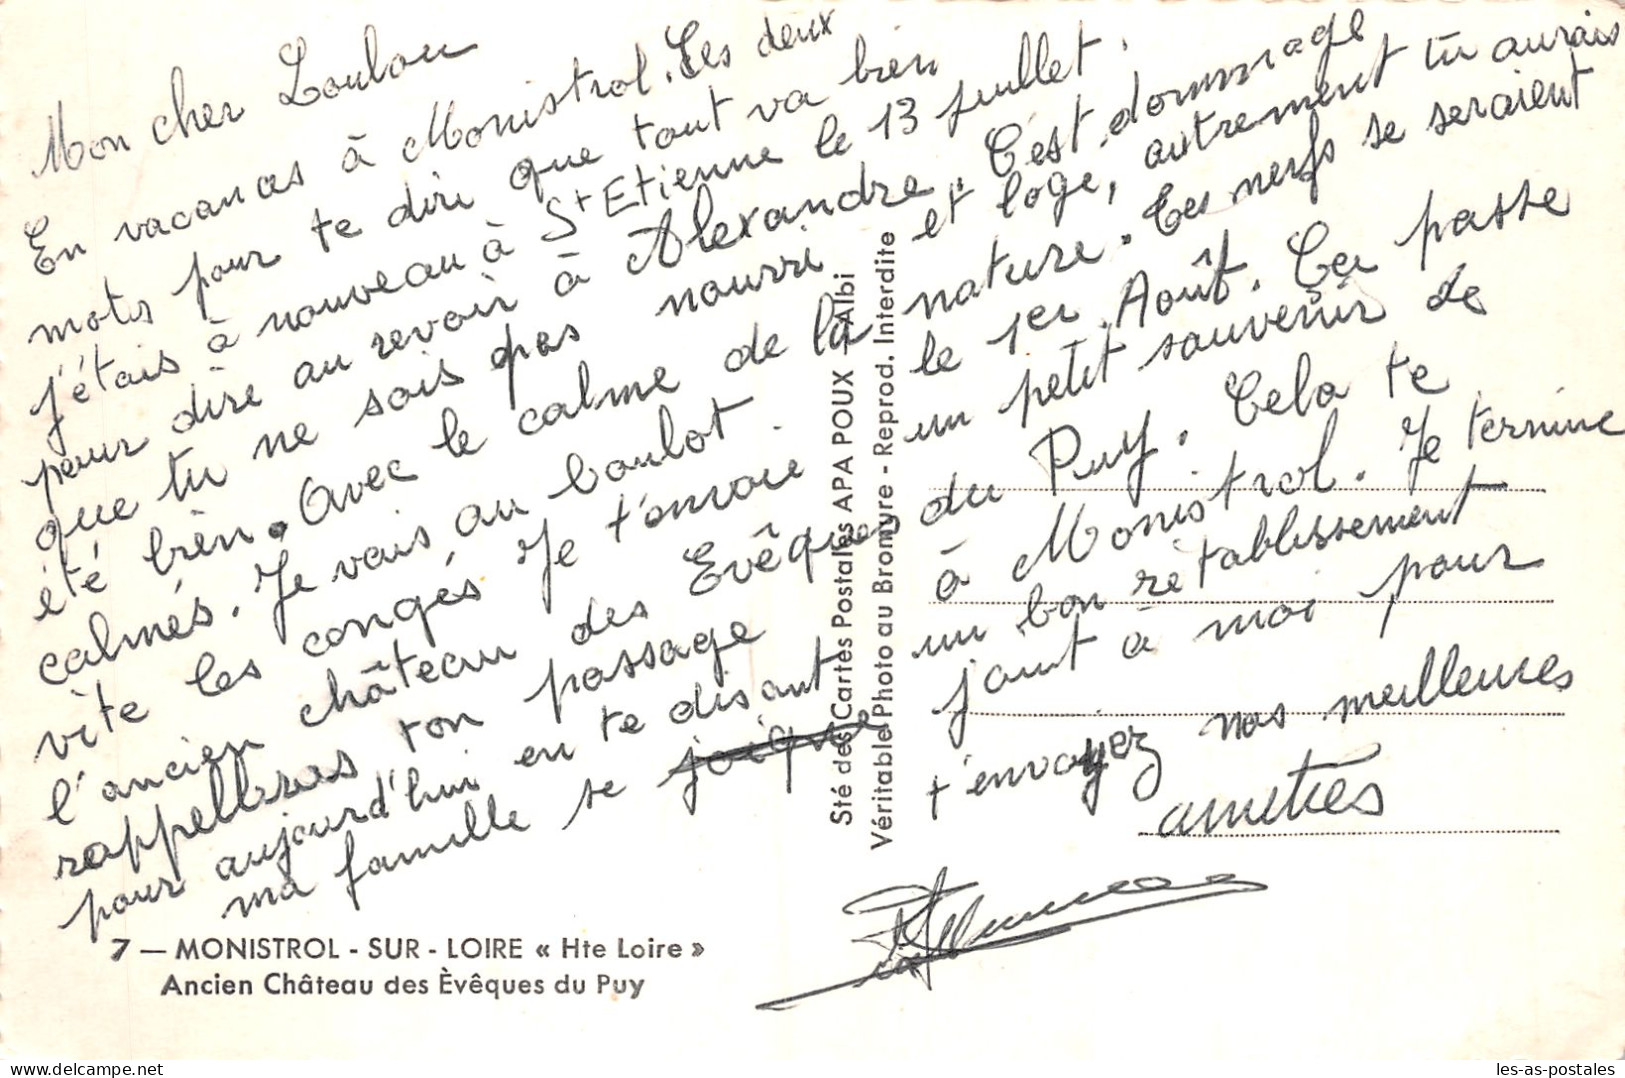 Mon cher Loulou
En vacances à Monistrol. Ces deux
mots pour te dire que tout va bien
j'étais à nouveau à St Etienne le 13 juillet.
pour dire au revoir à Alexandre. C'est dommage
que tu ne sois pas nourri et logé, autrement tu aurais
été bien. Avec le calme de la nature. Ces nerfs se seraient
calmés. Je vais au boulot le 1er Août. Ceci passe
vite les congés. Je t'envoie un petit souvenir de
l'ancien château des Evêques du Puy. Cela te
rappelleras ton passage à Monistrol. Je termine
pour aujourd'hui en te disant un bon rétablissement
ma famille se joigne joint à moi pour
t'envoyez nos meilleures
amitiés
Sté des Cartes Postales APA POUX - Albi
Véritable Photo au Bromure - Reprod. Interdite
7 — MONISTROL - SUR - LOIRE « Hte Loire »
Ancien Château des Èvêques du Puy
les-as-postales